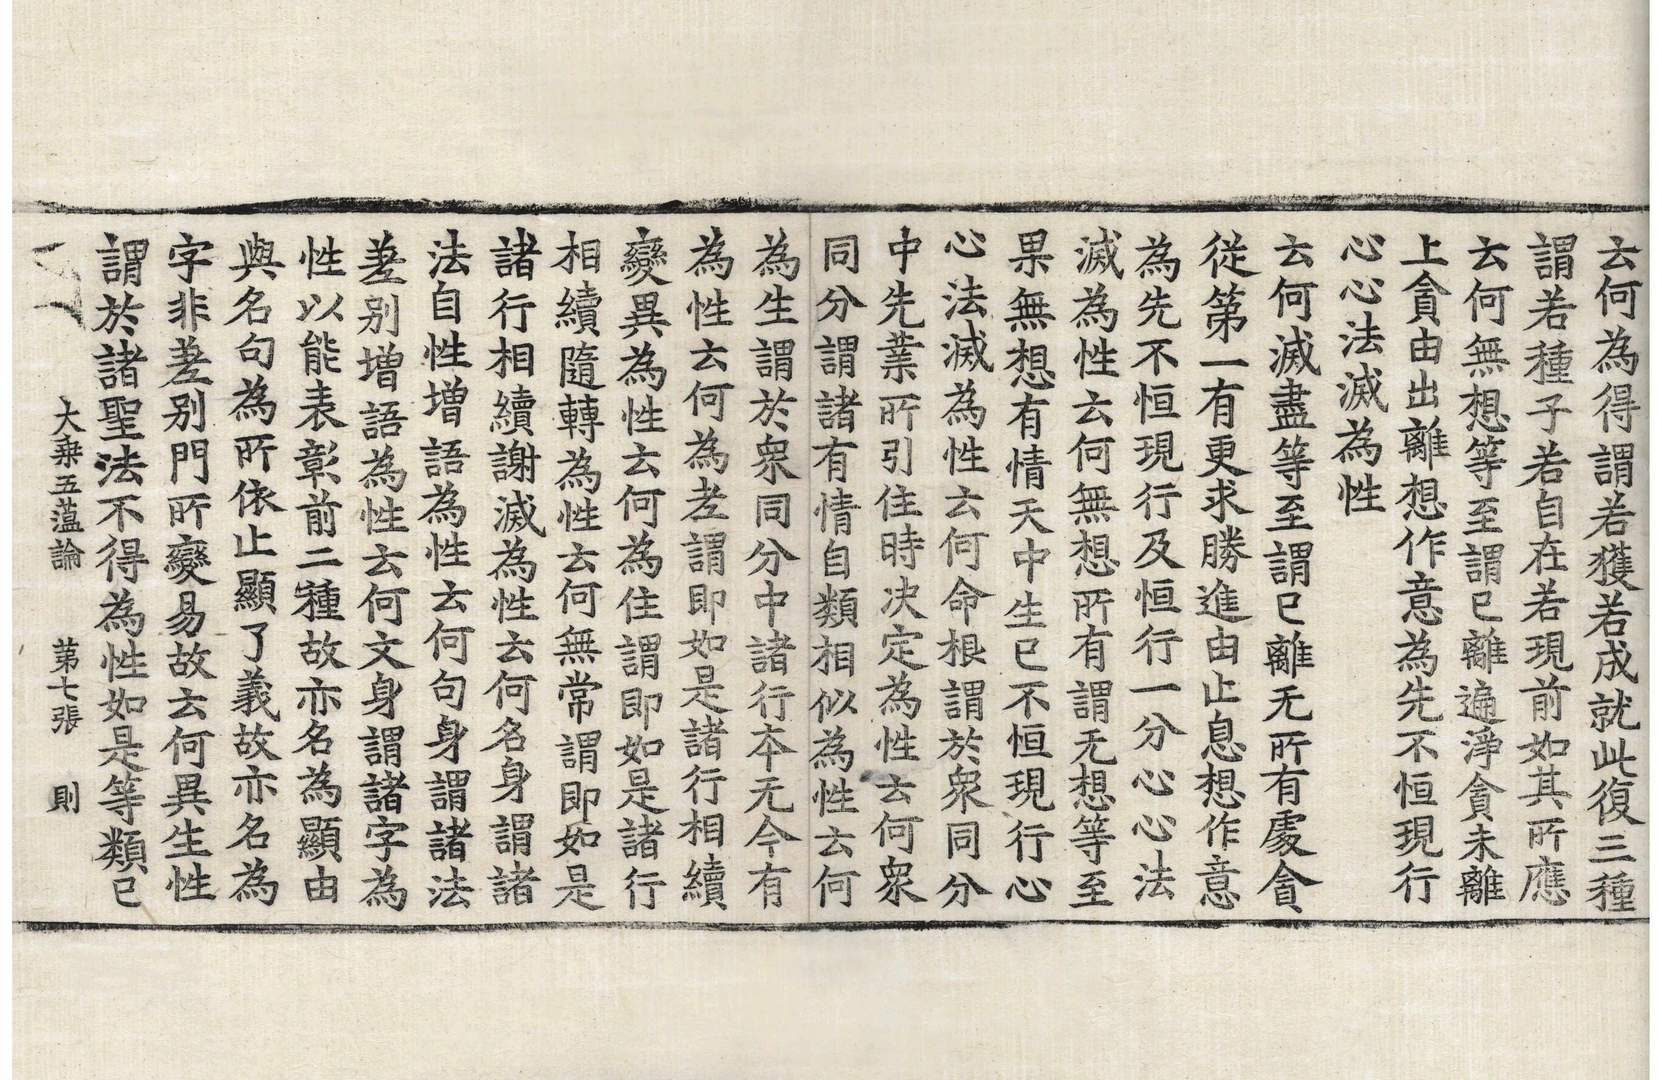 云何為得謂若獲若成就此復三種
謂若種子若自在若現前如其所應
云何無想等至謂已離遍淨貪未離
上貪由出離想作意為先不恒現行
心心法滅為性
云何滅盡等至謂已離无所有處貪
從第一有更求勝進由止息想作意
為先不恒現行及恒行一分心心法
滅為性云何無想所有謂无想等至
果無想有情天中生已不恒現行心
心法滅為性云何命根謂於衆同分
中先業所引住時決定為性云何衆
同分謂諸有情自類相似為性云何
為生謂於衆同分中諸行本无今有
為性云何為老謂即如是諸行相續
變異為性云何為住謂即如是諸行
相續隨轉為性云何無常謂即如是
諸行相續謝滅為性云何名身謂諸
法自性增語為性云何句身謂諸法
差別增語為性云何文身謂諸字為
性以能表彰前二種故亦名為顯由
與名句為所依止顯了義故亦名為
字非差別門所變易故云何異生性
謂於諸聖法不得為性如是等類已
大乘五蘊論 第七張 則